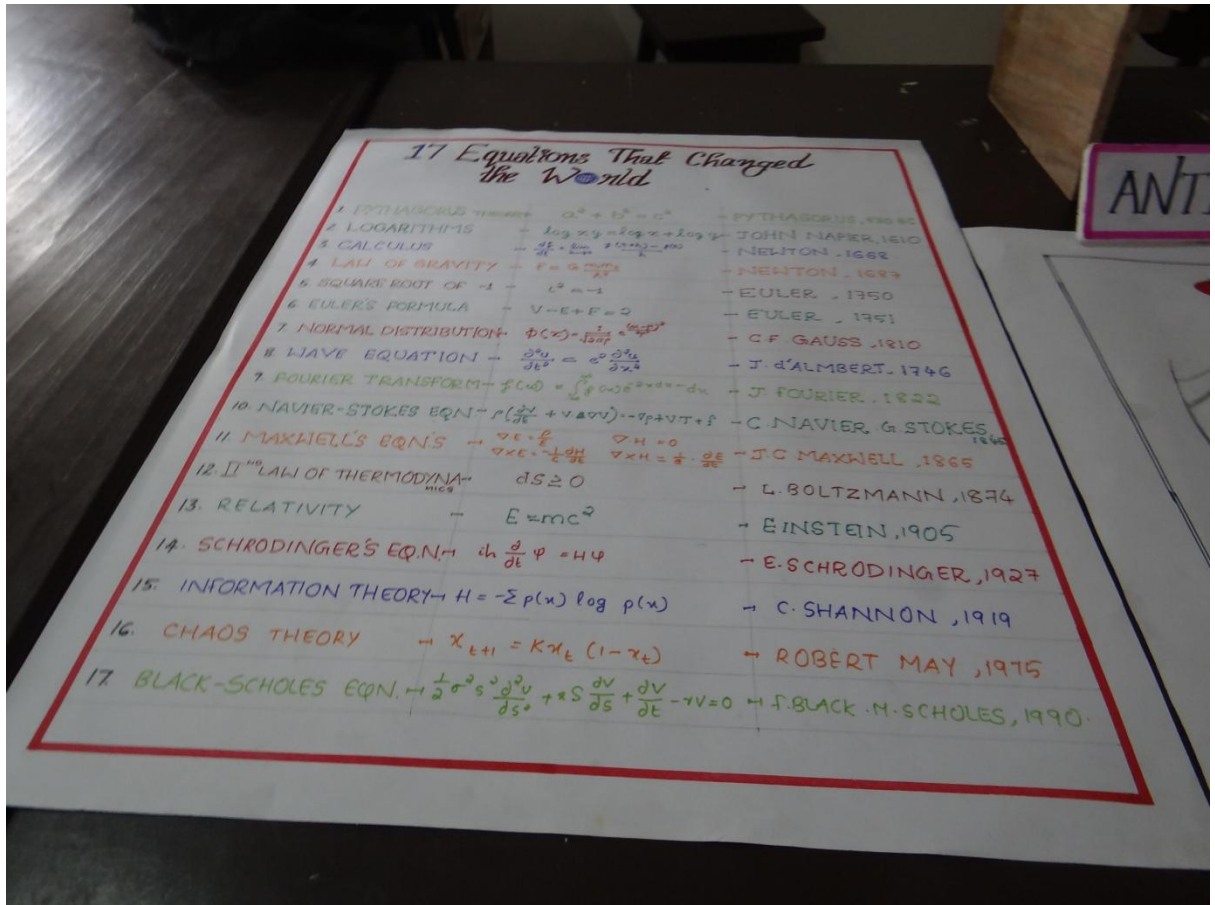 17 Equations That Changed
the World
1. PYTHAGORUS THEOREM a² + b² = c² - PYTHAGORUS, 530 BC
2. LOGARITHMS - log xy = log x + log y - JOHN NAPIER, 1610
3. CALCULUS - df/dt = lim h→0 f(t+h) - f(t)/h - NEWTON, 1668
4. LAW OF GRAVITY - F = G m₁m₂/r² - NEWTON, 1687
5. SQUARE ROOT OF -1 - i² = -1 - EULER, 1750
6. EULER'S FORMULA - V-E+F=2 - EULER, 1751
7. NORMAL DISTRIBUTION - Φ(x) = - C.F. GAUSS, 1810
8. WAVE EQUATION - ∂²u/∂t² = c² ∂²u/∂x² - J. d'ALMBERT, 1746
9. FOURIER TRANSFORM - - J. FOURIER, 1822
10. NAVIER-STOKES EQN - - C. NAVIER. G. STOKES,
11. MAXWELL'S EQN'S - ∇·H = 0 - J.C MAXWELL, 1865
12. IIⁿᵈ LAW OF THERMODYNA- dS ≥ 0 - L. BOLTZMANN, 1874
MICS
13. RELATIVITY - E = mc² - EINSTEIN, 1905
14. SCHRODINGER'S EQ.N - ih ∂/∂t ψ = Hψ - E. SCHRODINGER, 1927
15. INFORMATION THEORY - H = -Σ p(x) log p(x) - C. SHANNON, 1919
16. CHAOS THEORY - x_{t+1} = Kx_t (1-x_t) - ROBERT MAY, 1975
17. BLACK-SCHOLES EQN. - ½ σ²S² ∂²V/∂S² + rS ∂V/∂S + ∂V/∂t - rV = 0 - F. BLACK. M. SCHOLES, 1990.
ANTI